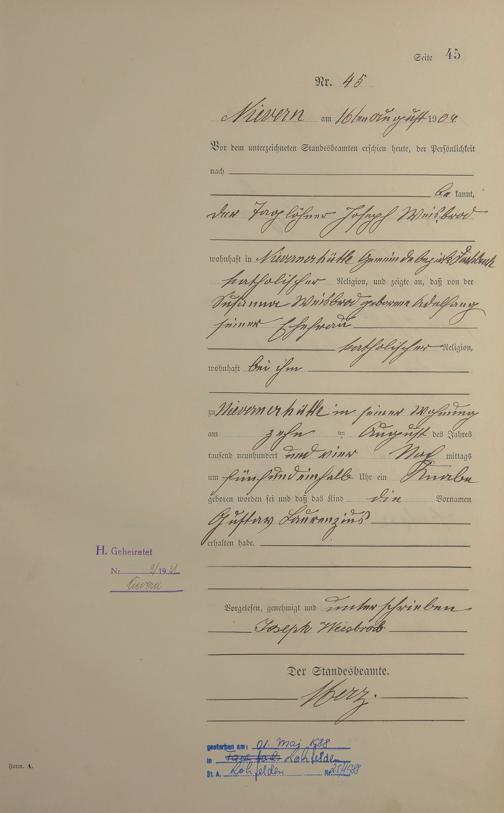 Seite 45
Nr. 45
Nievern am 16ten August 1904
Vor dem unterzeichneten Standesbeamten erschien heute, der Persönlichkeit
nach
be kannt,
der Taglöhner Joseph Weisbrod
wohnhaft in Nievernerhütte Gemeindebezirk Fachbach
katholischer Religion, und zeigte an, daß von der
Susanna Weisbrod geborene Adelfang
seiner Ehefrau
katholischer Religion,
wohnhaft bei ihm
zu Nievernerhütte in seiner Wohnung
am zehn ten August des Jahres
tausend neunhundert und vier Nach mittags
um fünf und einhalb Uhr ein Knabe
geboren worden sei und daß das Kind die Vornamen
Gustav Laurenzius
erhalten habe.
H. Geheiratet
Nr. 2/1931
Nievern
Vorgelesen, genehmigt und unterschrieben
Joseph Weisbrod
Der Standesbeamte.
Merz.
gestorben am: 01. Mai 1988
in Lohfelden
St. A. Lohfelden Nr.
Form. A.